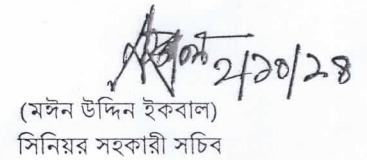 ২/১০/২৪
(মঈন উদ্দিন ইকবাল)
সিনিয়র সহকারী সচিব